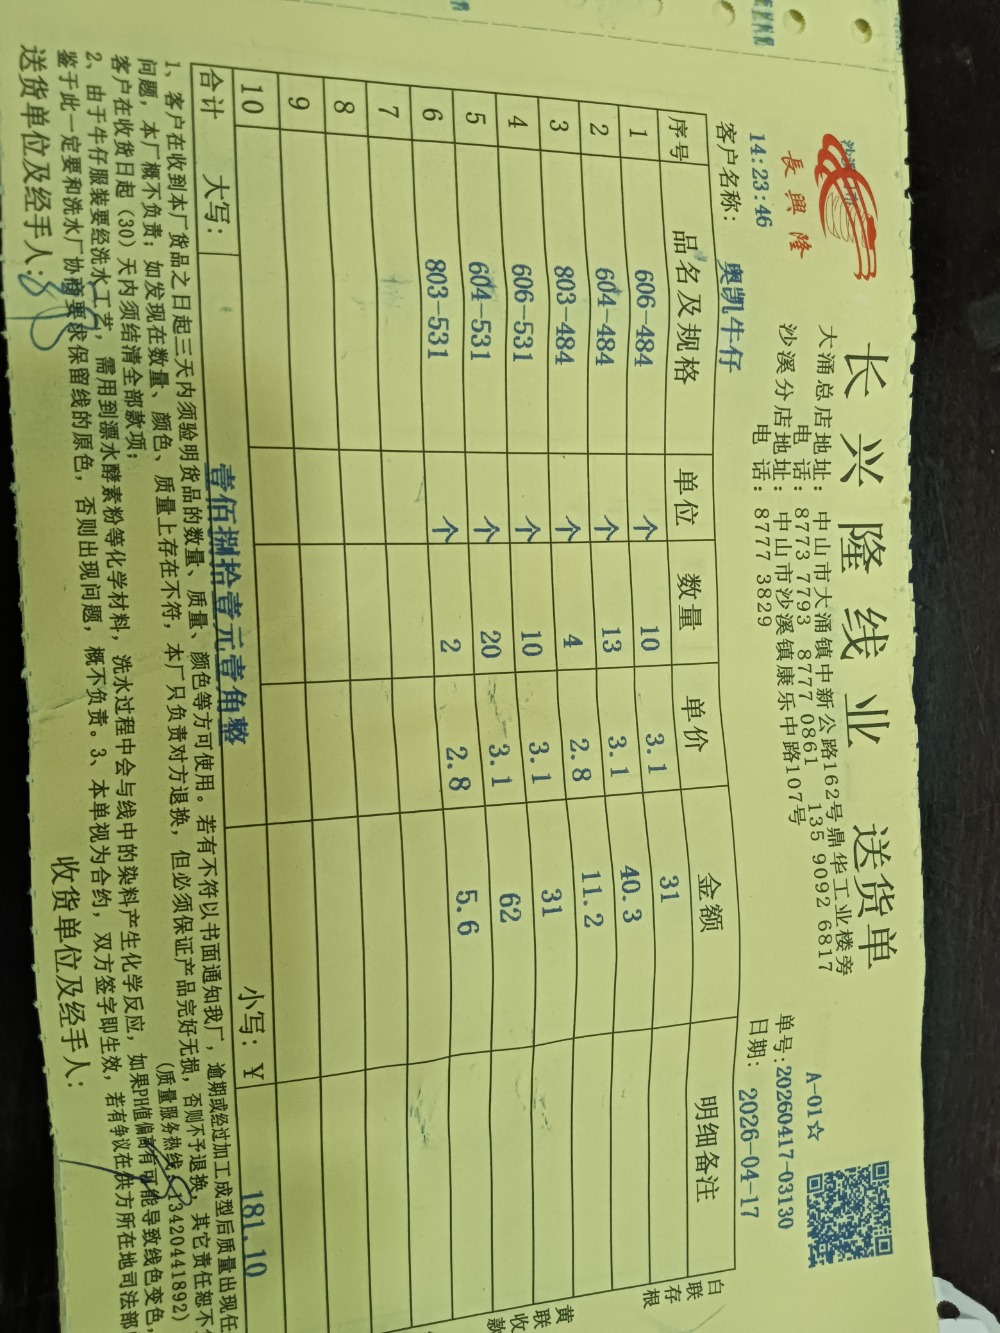 長興隆
长兴隆线业 送货单
A-01☆
大涌总店地址：中山市大涌镇中新公路162号鼎华工业楼旁
电 话：8773 7793 8777 0861 135 9092 6817
沙溪分店地址：中山市沙溪镇康乐中路107号
电 话：8777 3829
单号:20260417-03130
14:23:46
日期：2026-04-17
客户名称：奥凯牛仔
序号 品名及规格 单位 数量 单价 金额 明细备注
1 606-484 个 10 3.1 31
2 604-484 个 13 3.1 40.3
3 803-484 个 4 2.8 11.2
4 606-531 个 10 3.1 31
5 604-531 个 20 3.1 62
6 803-531 个 2 2.8 5.6
7
8
9
10
合计 大写：壹佰捌拾壹元壹角整 小写：¥ 181.10
1、客户在收到本厂货品之日起三天内须验明货品的数量、质量、颜色等方可使用。若有不符以书面通知我厂，逾期或经过加工成型后质量出现任
问题，本厂概不负责；如发现在数量、颜色、质量上存在不符，本厂只负责对方退换，但必须保证产品完好无损，否则不予退换，其它责任恕不
客户在收货日起（30）天内须结清全部款项； （质量服务热线：13420441892）
2、由于牛仔服装要经洗水工艺，需用到漂水酵素粉等化学材料，洗水过程中会与线中的染料产生化学反应，如果PH值偏高有可能导致线色变色，
鉴于此一定要和洗水厂协商要求保留线的原色，否则出现问题，概不负责。3、本单视为合约，双方签字即生效，若有争议在供方所在地司法部
送货单位及经手人： 收货单位及经手人：
白联存根
黄联收款